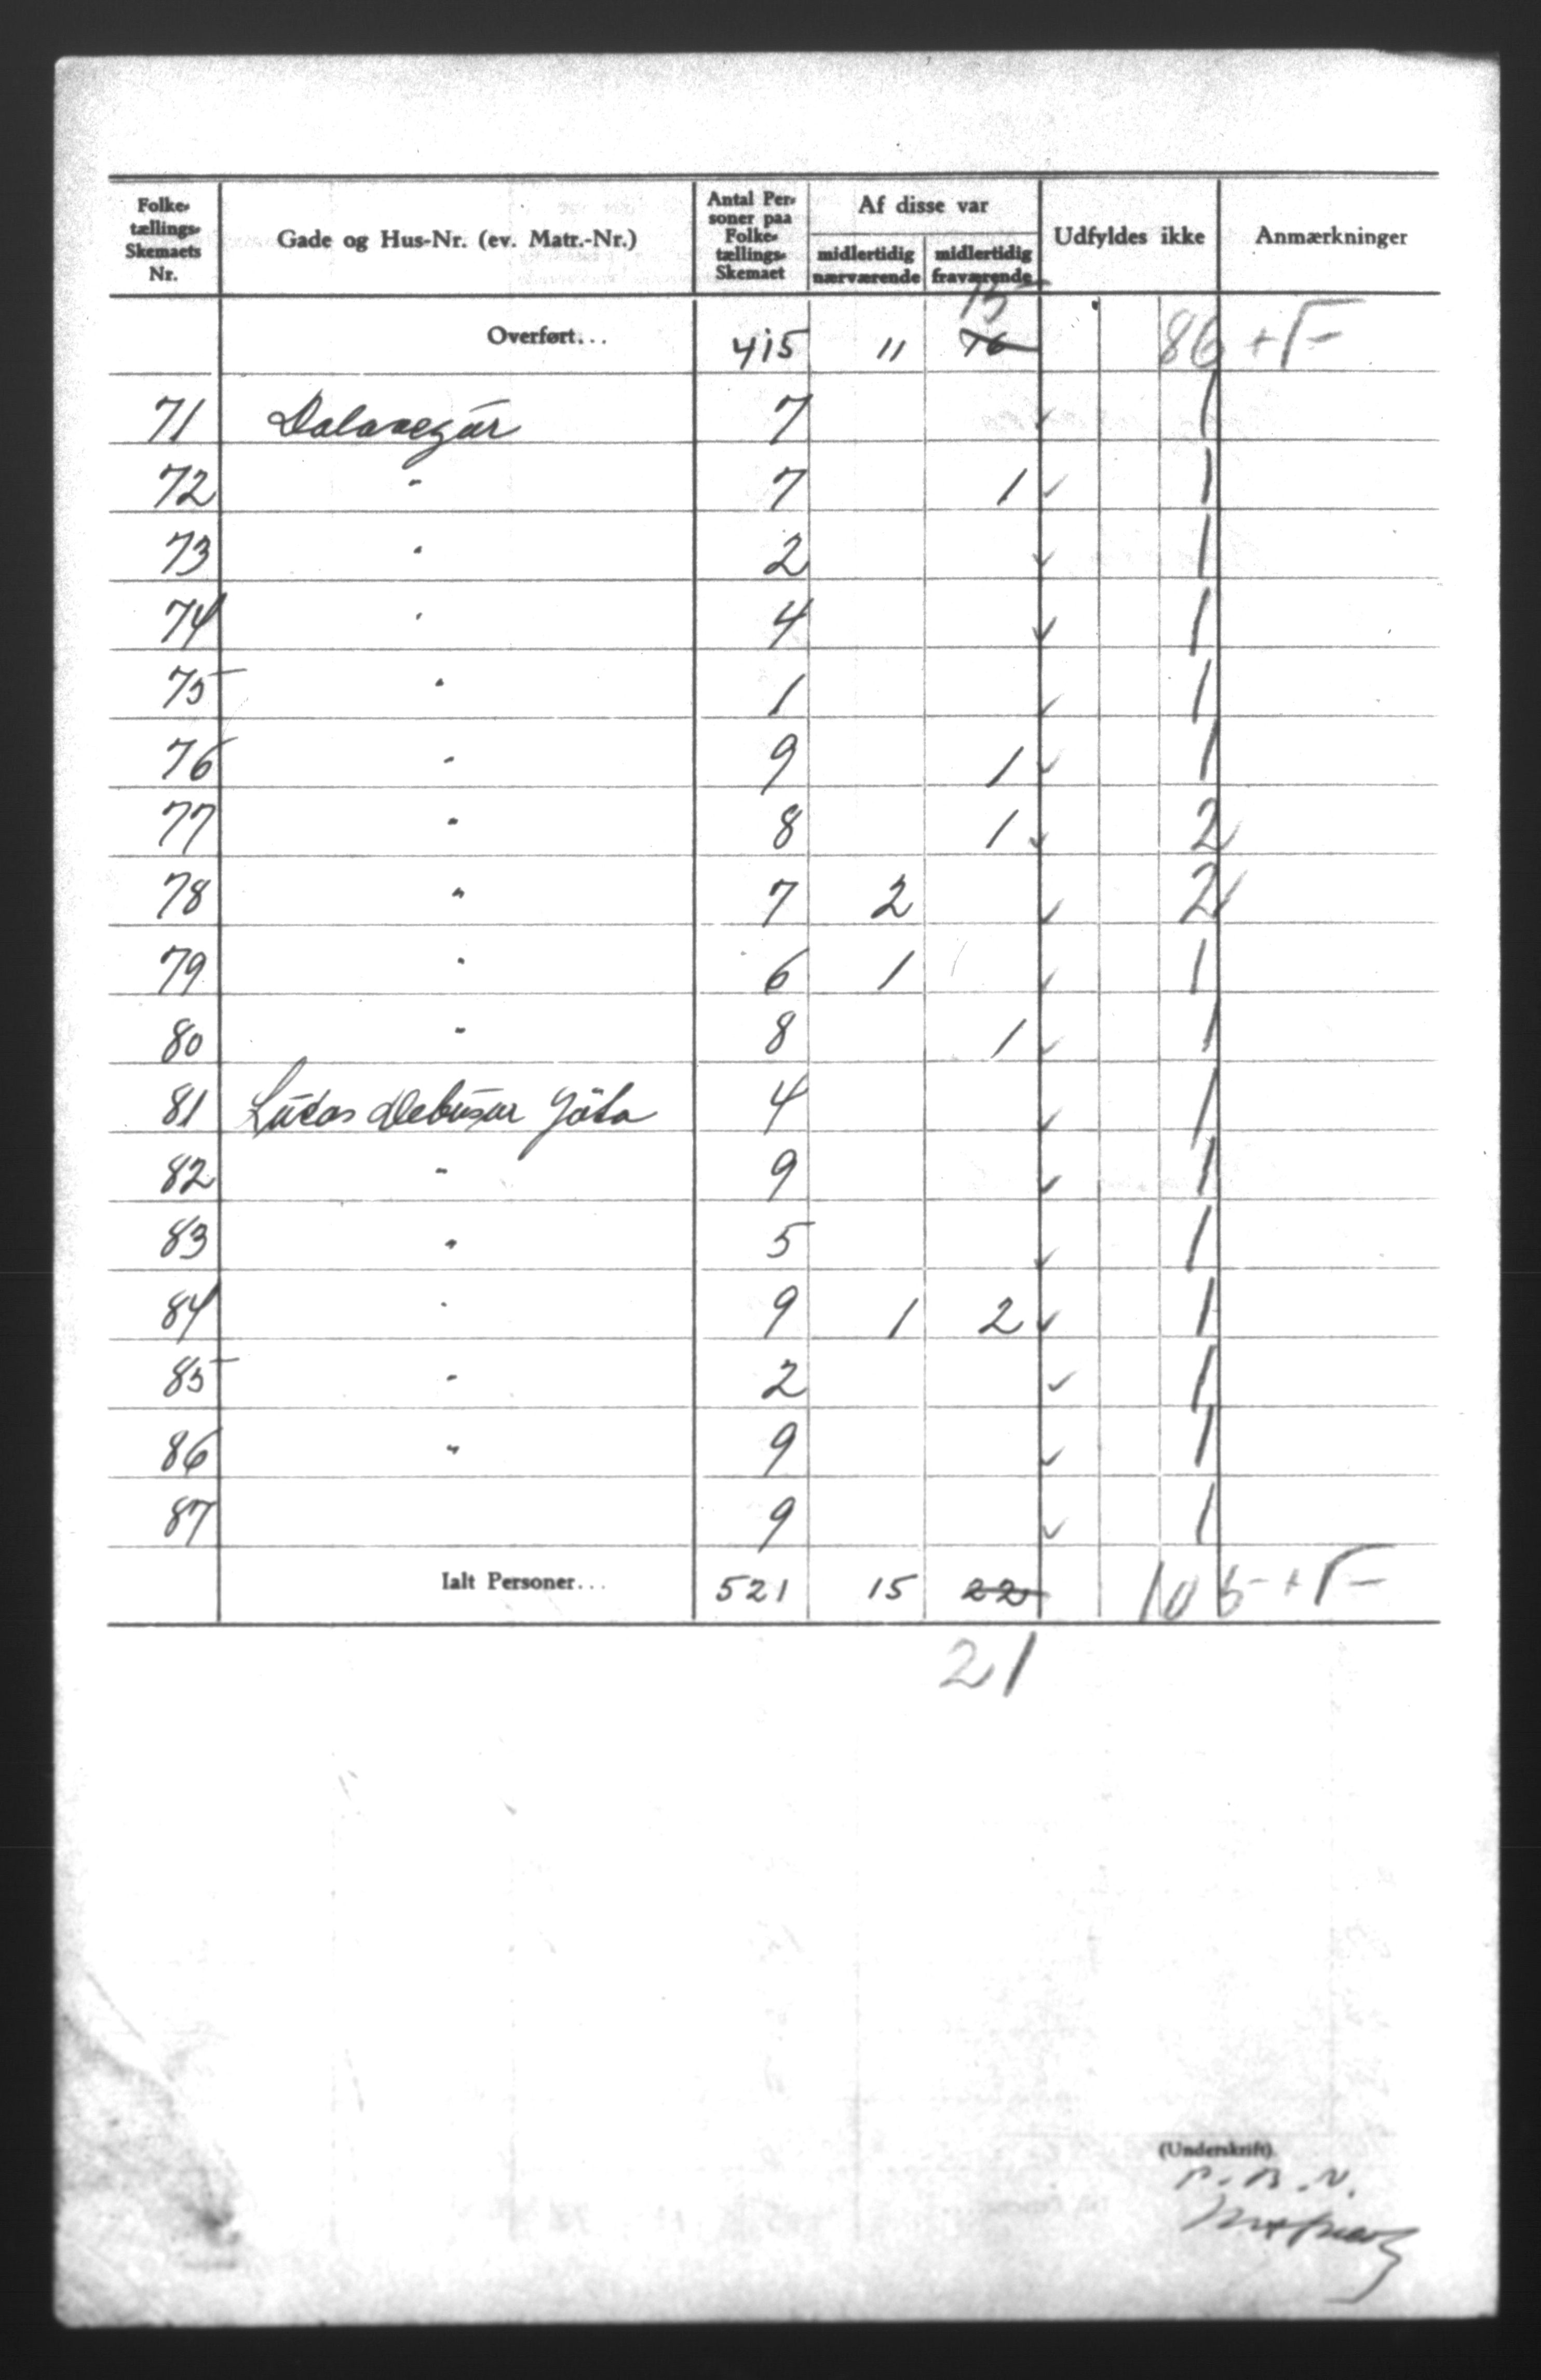 Folke- tællings- Skemaets Nr. | Gade og Hus-Nr. (ev. Matr.-Nr.) | Antal Per- soner paa Folke- tællings- Skemaet | Af disse var | midlertidig nærværende | midlertidig fraværende | Udfyldes ikke | Anmærkninger
15
Overført... 415 11 16 86 + 5-
71 Dalavegur 7 ✓ 1
72 " 7 1 ✓ 1
73 " 2 ✓ 1
74 " 4 ✓ 1
75 " 1 ✓ 1
76 " 9 1 ✓ 1
77 " 8 1 ✓ 2
78 " 7 2 ✓ 2
79 " 6 1 ✓ 1
80 " 8 1 ✓ 1
81 Lucas Debusar Jøta 4 ✓ 1
82 " 9 ✓ 1
83 " 5 ✓ 1
84 " 9 1 2 ✓ 1
85 " 2 ✓ 1
86 " 9 ✓ 1
87 9 ✓ 1
Ialt Personer... 521 15 22 105 + 5-
21
(Underskrift).